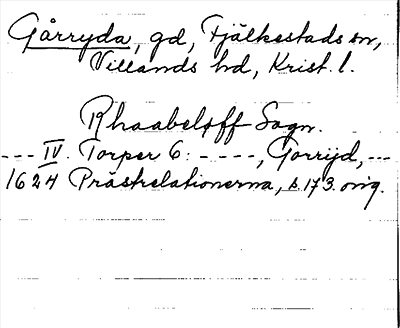 Gårryda, gd, Fjälkestads sn,
Villands hd, Krist. l.
Rhaabeløff Sogn.
--- IV. Torper 6: - ---, Gorrijd, ---
1624 Prästrelationerna, s. 173. orig.